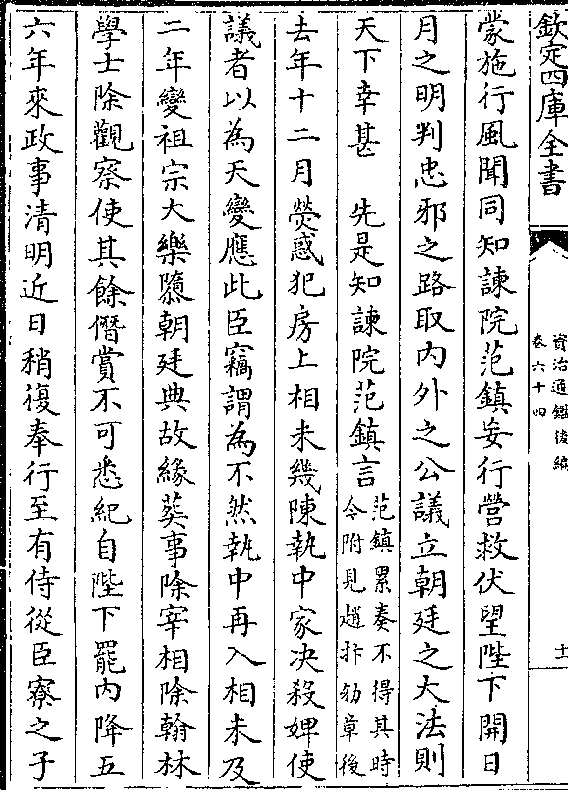 欽定四庫全書
資治通鑑後編
卷六十四
十一
蒙施行風聞同知諫院范鎮妄行營救伏望陛下開日
月之明判忠邪之路取内外之公議立朝廷之大法則
天下幸甚　先是知諫院范鎮言
范鎮累奏不得其時
今附見趙抃劾章後
去年十二月熒惑犯房上相未幾陳執中家决殺婢使
議者以為天變應此臣竊謂為不然執中再入相未及
二年變祖宗大樂隳朝廷典故緣葬事除宰相除翰林
學士除觀察使其餘僭賞不可悉紀自陛下罷内降五
六年來政事清明近日稍復奉行至有侍從臣寮之子